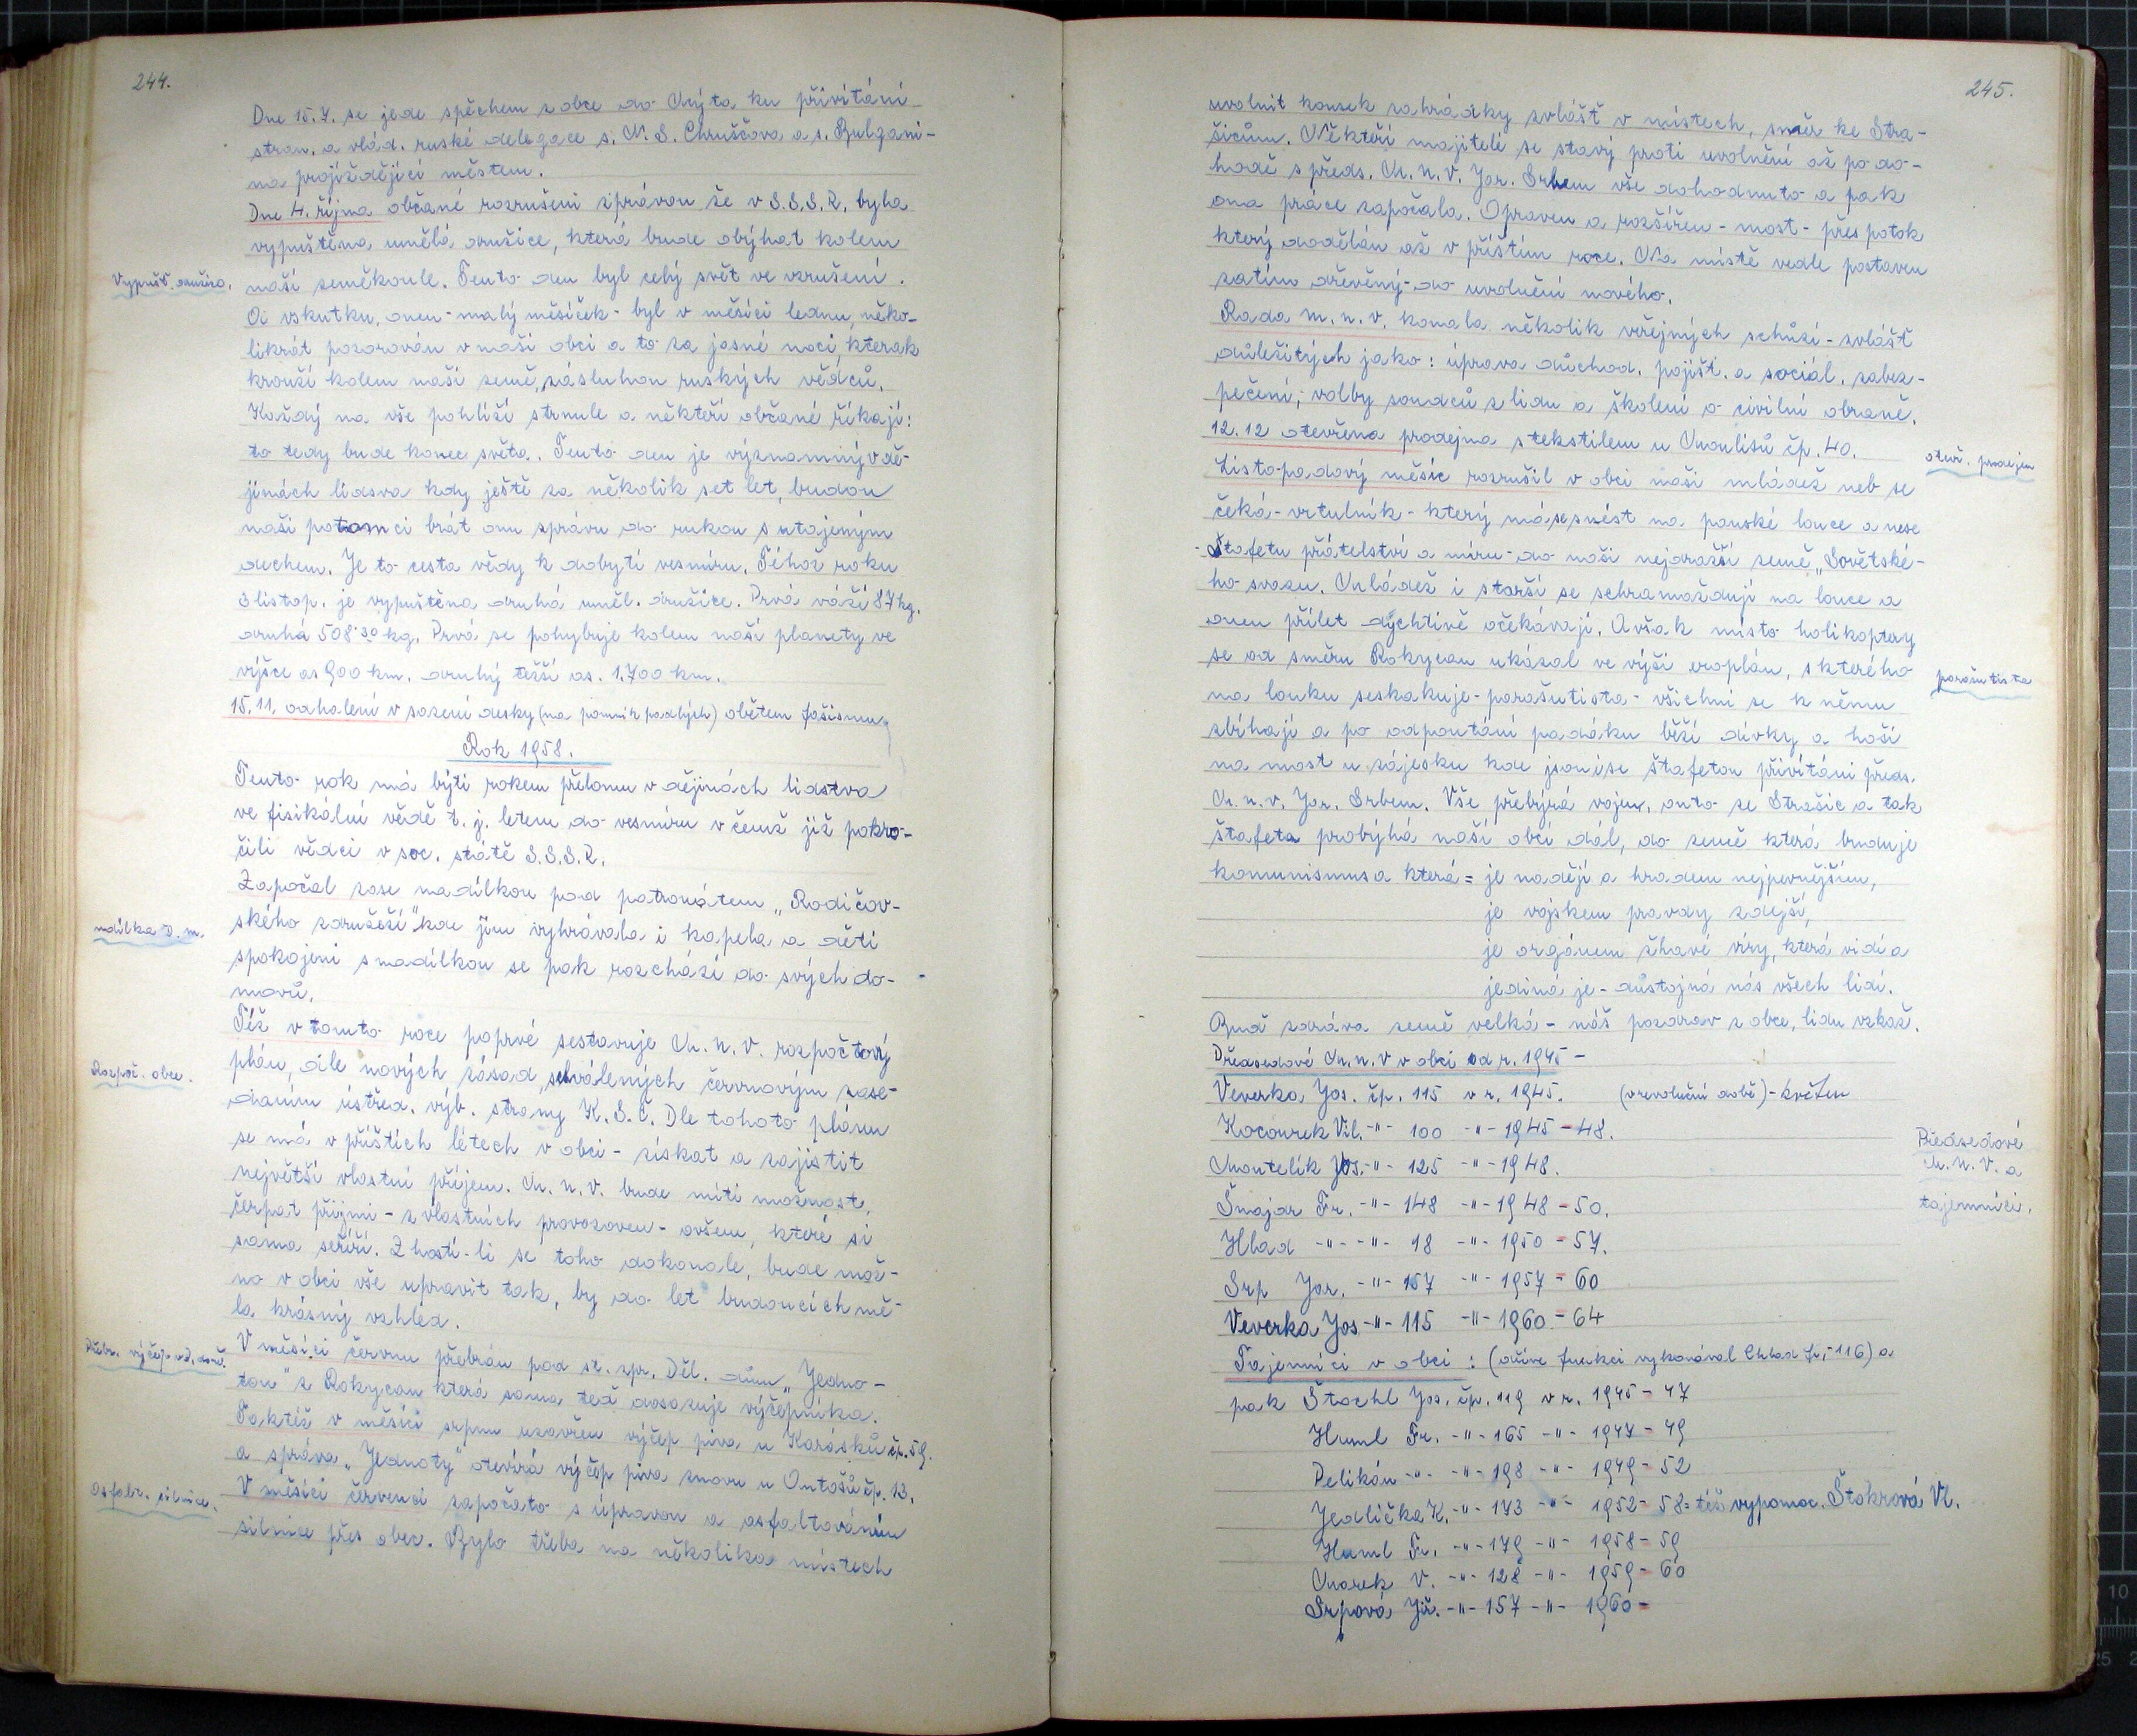 244.
Dne 15.7. se jede spěchem z obce do Mýta ku přivítání
stran. a vlád. ruské delegace s. N. S. Chruščova a s. Bulgani-
na projíždějící městem.
Dne 4. října občané rozrušeni zprávou že v S.S.S.R. byla
vypuštěna umělá družice, která bude obýhat kolem
Vypušť. družice.
naší zeměkoule. Tento den byl celý svět ve vzrušení.
Oi vskutku, onen - malý měsíček - byl v měsíci lednu, něko-
likrát pozorován v naší obci a to za jasné noci, kterak
krouží kolem naší země, zásluhou ruských vědců.
Každý na vše pohlíží strnule a někteří občané říkají:
to tedy bude konec světa. Tento den je význammý v dě-
jinách lidsva kdy ještě za několik set let, budou
naši potomci brát onu zprávu do rukou s utajeným
dechem. Je to cesta vědy k dobytí vesmíru. Téhož roku
3 listop. je vypuštěna druhá uměl. družice. Prvá váží 87 kg.
druhá 508·30 kg. Prvá se pohybuje kolem naší planety ve
výšce as 900 km. druhý těžší as. 1.700 km.
15.11. odhalení v sazení desky (na pomník padlých) obětem fašismu.
Rok 1958.
Tento rok má býti rokem přelomu v dějinách lidstva
ve fisikální vědě t. j. letem do vesmíru v čemž již pokro-
čili vědci v soc. státě S.S.S.R.
Započal zase nadílkou pod patronátem „Rodičov-
ského sdružěší" kde jim vyhrávala i kapela a děti
ndílka D. m.
spokojeni s nadílkou se pak rozchází do svých do-
movů.
Též v tomto roce poprvé sestavuje M. n. V. rozpočtový
plán, dle nových zásad, schválených červnovým zase-
Rozpoč. obce.
dáním ústřed. výb. strany K. S. Č. Dle tohoto plánu
se má v příštích létech v obci - získat a zajistit
největší vlastní příjem. M. n. V. bude míti možnost,
čerpat příjmi - z vlastních provozoven - ovšem, které si
sama seřídí. Zhostí-li se toho dokonale, bude mož-
no v obci vše upravit tak, by do let budoucích mě-
la krásný vzhled.
V měsíci červnu přebrán pod st. spr. Děl. dům „Jedno-
Přebr. výčep v D. domě.
tou" z Rokycan která sama teď dosazuje výčepníka.
Taktéž v měsíci srpnu uzavřen výčep piva u Karásků čp. 59.
a správa „Jednoty" otevírá výčep piva znovu u Ontošů čp. 13.
V měsíci červenci započato s úpravou a asfaltováním
asfalt. silnice.
silnice přes obec. Bylo třeba na několika místech
245.
uvolnit kousek zahrádky zvlášť v místech, směr ke Stra-
šicům. Někteří majitelé se staví proti uvolnění až po do-
hodě s předs. M. n. V. Jar. Srbem vše dohodnuto a pak
ona práce započala. Opraven a rozšířen - most - přes potok
který dodělán až v příštím roce. Na místě vedle postaven
zatím dřevěný - do uvolnění nového.
Rada m. n. v. konala několik veřejných schůzí - zvlášť
důležitých jako: úprava důchod. pojišť. a sociál. zabez-
pečení; volby soudců z lidu a školení o civilní obraně.
12.12 otevřena prodejna s tekstilem u Moulisů čp. 40.
otevř. prodejen
Listopadový měsíc rozrušil v obci naší mládež neb se
čeká - vrtulník - který má se snést na panské louce a nese
- Štafetu přátelství a míru - do naší nejdražší země „Sovětské-
ho svazu. Mládež i starší se schramaždují na louce a
onen přílet dýchtivě očekávají. Avšak místo holikoptery
se od směru Rokycan ukázal ve výši eroplán, s kterého
na louku seskakuje - parašutista - všichni se k němu
parašutista
sbíhají a po odpoutání padáku běží dívky a hoši
na most u zájezku kde jsou i se štafetou přivítáni předs.
M. n. v. Jar. Srbem. Vše přebýrá vojen. auto ze Strašic a tak
štafeta probýhá naší obcí dál, do země která buduje
komunismus a která = je nadějí a hradem nejpevnějším,
je vojskem pravdy zdejší,
je orgánem žhavé víry, která vidí a
jediná je - důstojná nás všech lidí.
Buď zdráva země velká - náš pozdrav z obce, lidu vzkaž.
Předsedové M. n. V v obci od r. 1945 -
Veverka Jos. čp. 115 v r. 1945. (v revoluční době) - květen
Kocourek Vil. -"- 100 -"- 1945 - 48.
Předsedové
M. N. V. a
tajemníci.
Montelík Jos. -"- 125 -"- 1948.
Šnajdr Fr. -"- 148 -"- 1948 - 50.
Hlad -"- -"- 18 -"- 1950 - 57.
Srp Jar. -"- 157 -"- 1957 - 60
Veverka Jos -"- 115 -"- 1960 - 64
Tajemníci v obci: (dříve funkci vykonával Chlad Fr. - 116) a
pak Štochl Jos. čp. 119 v r. 1945 - 47
Huml Fr. -"- 165 -"- 1947 - 49
Pelikán -"- -"- 198 -"- 1949 - 52
Jedlička K. -"- 173 -"- 1952 - 58 = též vypomoc. Štokrová Vl.
Huml Fr. -"- 179 -"- 1958 - 59
Marek V. -"- 128 -"- 1959 - 60
Srpová Jiř. -"- 157 -"- 1960 -